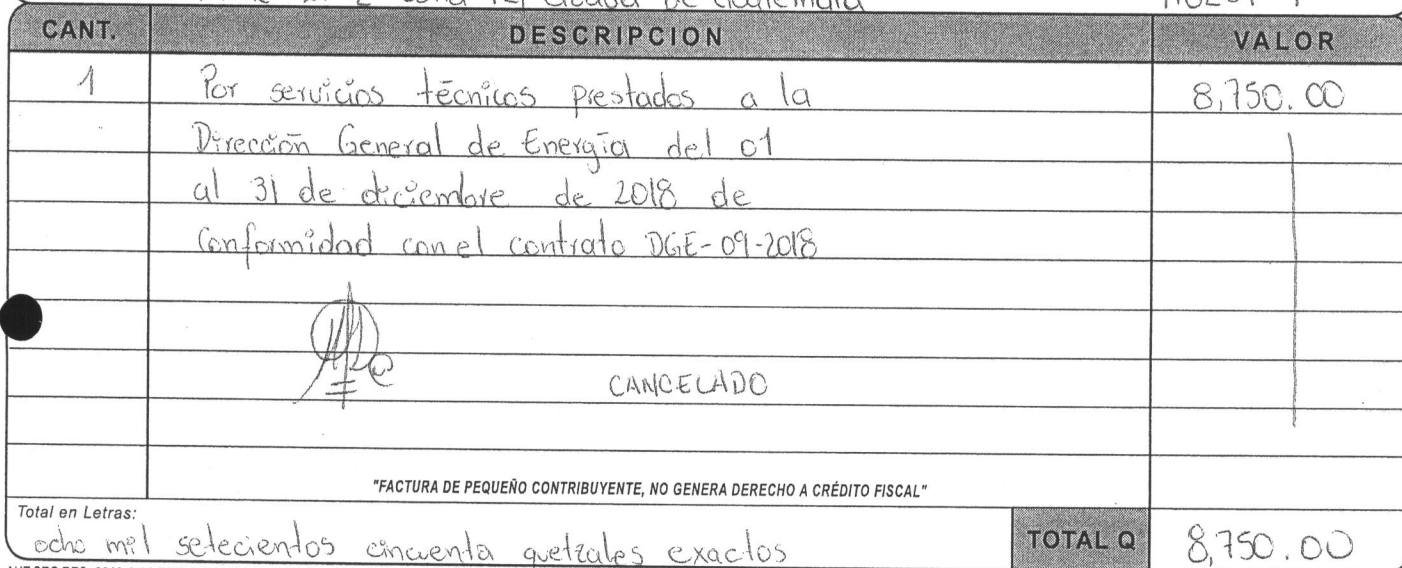 CANT. DESCRIPCION VALOR
1 Por servicios técnicos prestados a la 8,750.00
Dirección General de Energía del 01
al 31 de diciembre de 2018 de
Conformidad con el contrato DGE-09-2018
CANCELADO
"FACTURA DE PEQUEÑO CONTRIBUYENTE, NO GENERA DERECHO A CRÉDITO FISCAL"
Total en Letras:
ocho mil setecientos cincuenta quetzales exactos TOTAL Q 8,750.00